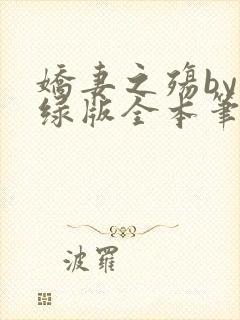 嬌妻之殤by
绿版全本筆
波羅